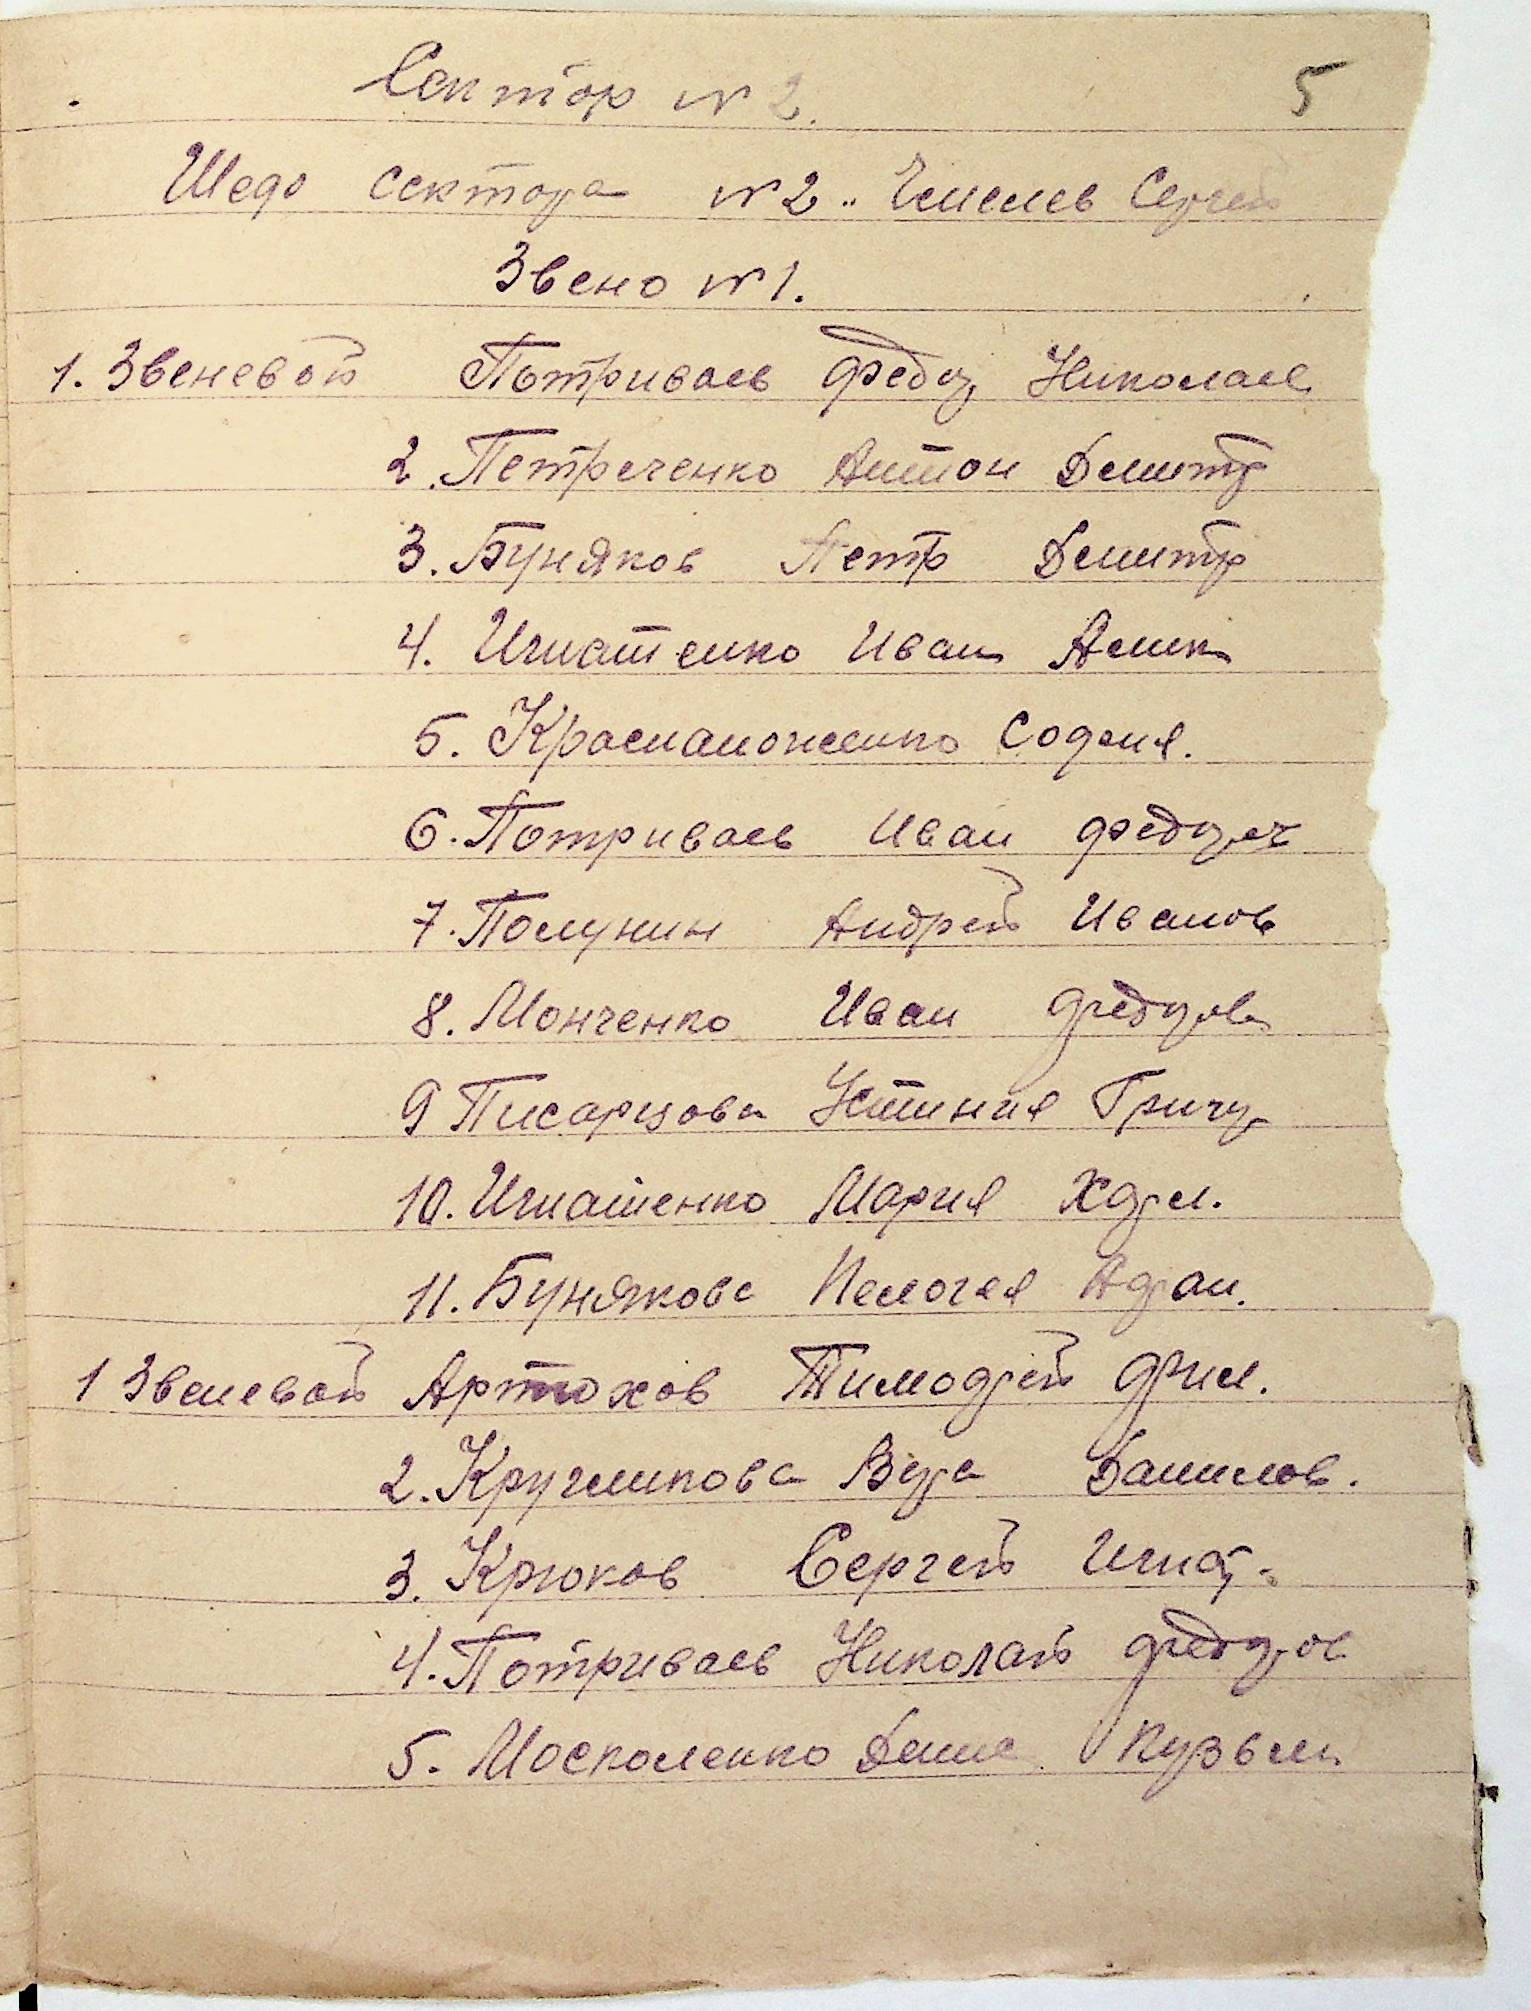 Сектор № 2. 5
Шеф сектора № 2.. Емелев Сергей
Звено № 1.
1. Звеневой Потриваев Федор Николаев
2. Петреченко Антон Дмитр
3. Буняков Петр Дмитр
4. Игнатенко Иван
5. Краснаможенко София.
6. Потриваев Иван Федорч
7. Полунин Андрей Иванов
8. Монченко Иван Федоров
9 Писарцова Устиния Григр
10. Игнатенко Мария Харл.
11. Бунякова Пелогея Адам.
1 Звеневой Артюхов Тимофей Фил.
2. Кругликова Вера Данилов.
3. Крюков Сергей Игнат.
4. Потриваев Николай Федоров
5. Москоленко Кузьм